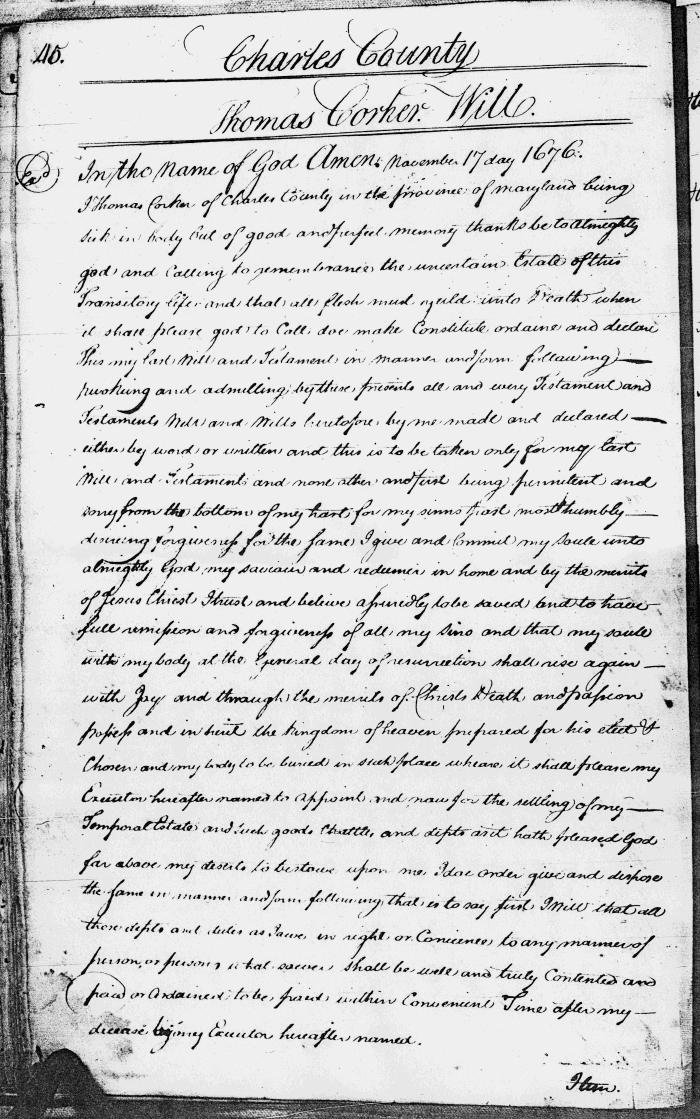 40.
Charles County
Thomas Corker. Will.
Exd
In the Name of God Amen: November 17 day 1676.
I Thomas Corker of Charles County in the province of maryland being
sick in body but of good and perfect memory thanks be to almighty
god and Calling to remembrance the uncertain Estate of this
Transitory life and that all flesh must yeild unto Death when
it shall please god to Call doe make Constitute ordaine and declare
This my last Will and Testament in manner and form following
revoking and admilling by these presents all and every Testament and
Testaments Will and Wills heretofore by me made and declared
either by word or written and this is to be taken only for my last
Will and Testament and none other and first being penitent and
sorry from the bottom of my hart for my sinns past most humbly
desireing forgiveness for the same I give and Commit my soule unto
almighty God my saviour and redeemer in home and by the merits
of Jesus Christ I trust and believe assuredly to be saved and to have
full remission and forgiveness of all my sins and that my soule
with my body at the General day of resurrection shall rise again
with Joy and through the merits of Christs Death and passion
posess and in herit the kingdom of heaven prepared for his elect &
Chosen and my body to be buried in such place wheare it shall please my
Executor hereafter named to appoint and now for the setling of my
Temporal Estate and such goods Chattles and depts as it hath pleased God
far above my deserts to bestowe upon me I doe order give and dispose
the same in manner and form following that is to say first I Will that all
those depts and duties as I owe in right or Conscience to any manner of
person or persons what soever shall be well and truly Contented and
paid or Ordained to be paid within Convenient Time after my
decease by my Executor hereafter named.
Item.